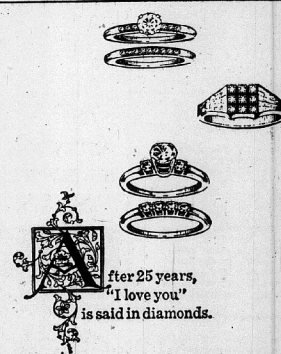 After 25 years,
"I love you"
is said in diamonds.